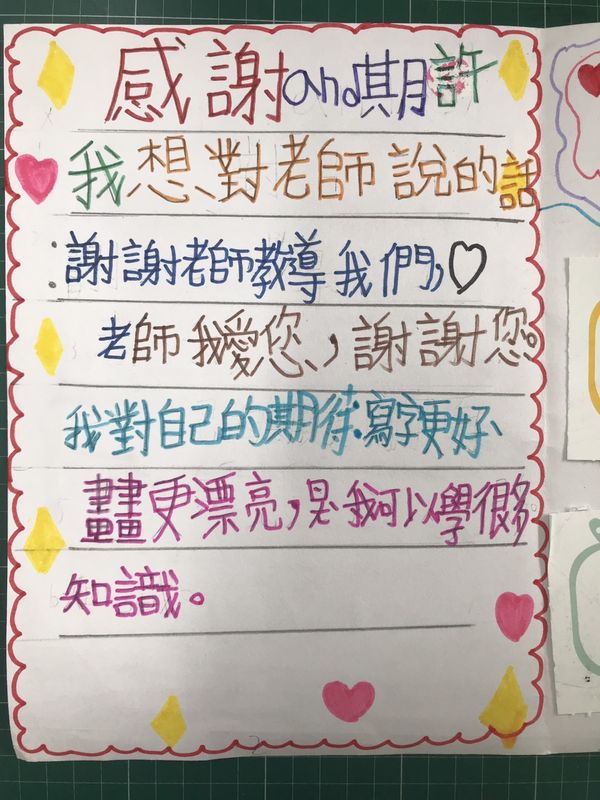 感謝and期許
我想對老師說的話
：謝謝老師教導我們，♡
老師我愛您，謝謝您。
我對自己的期待：寫字更好、
畫畫更漂亮，是我可以學很多
知識。